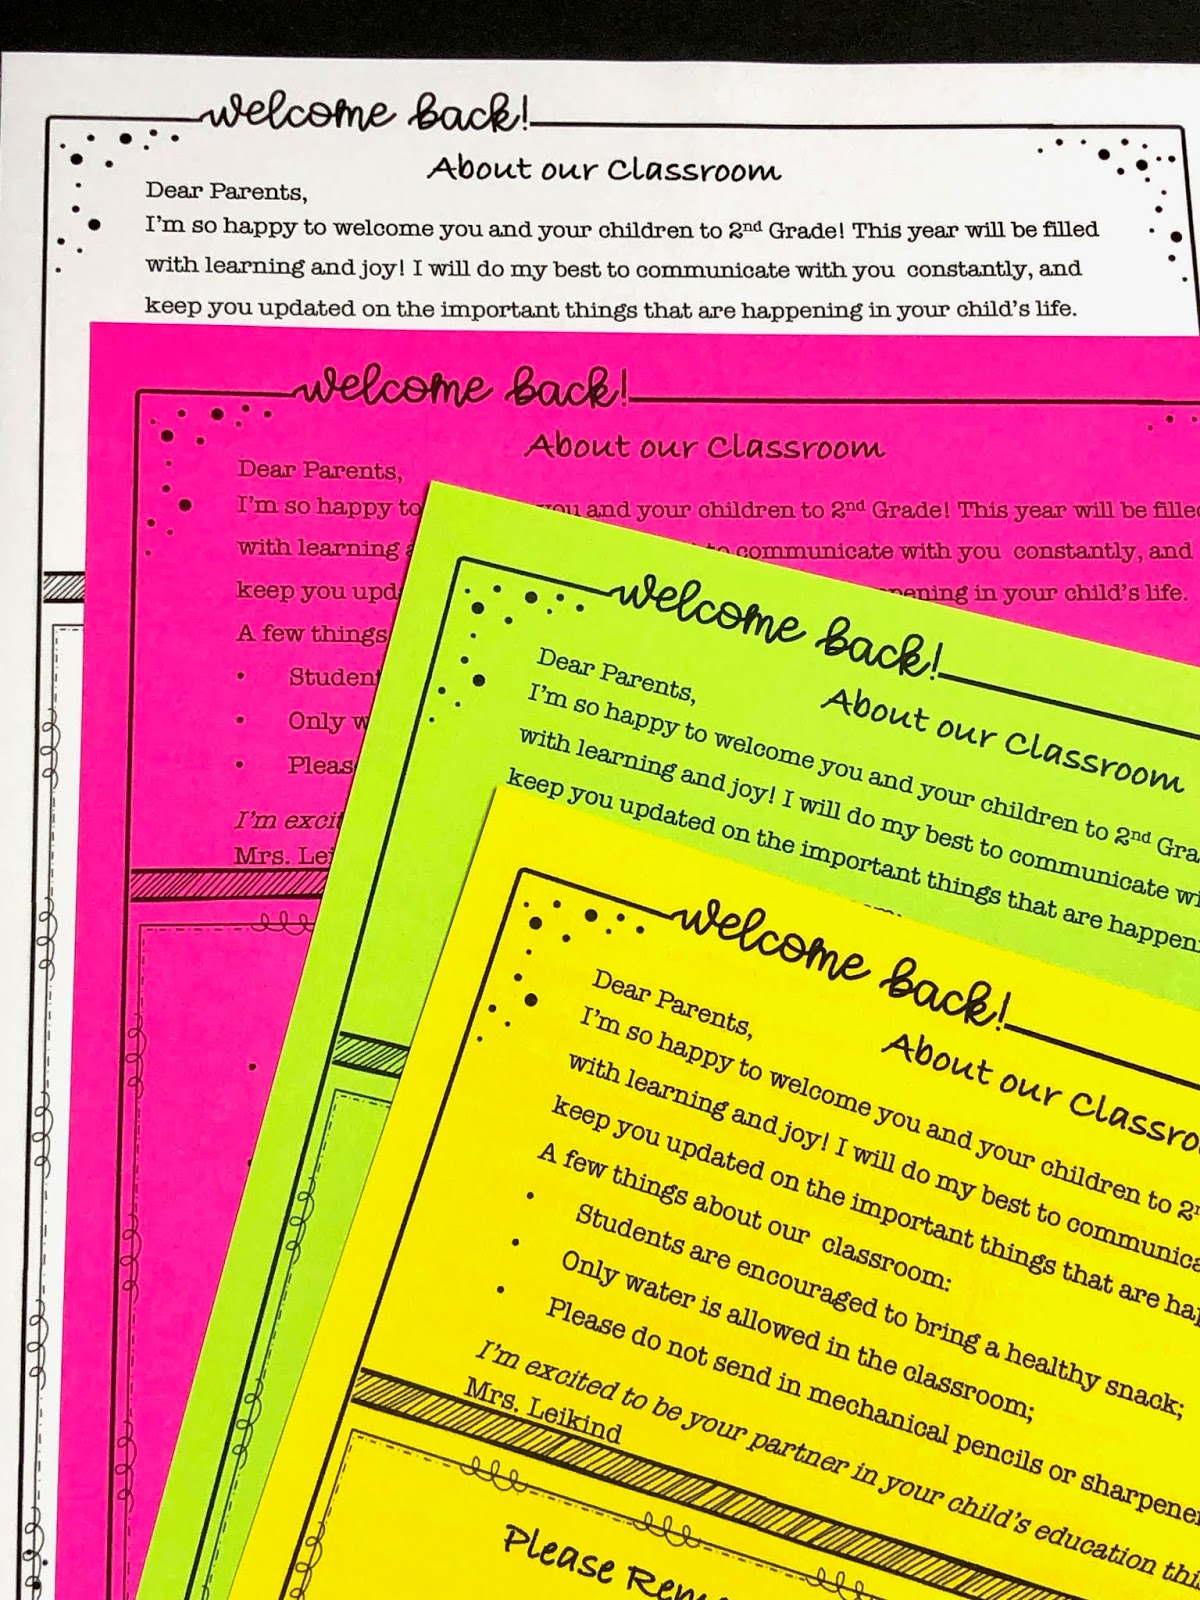 welcome back!
About our Classroom
Dear Parents,
I'm so happy to welcome you and your children to 2nd Grade! This year will be filled
with learning and joy! I will do my best to communicate with you constantly, and
keep you updated on the important things that are happening in your child's life.
welcome back!
About our Classroom
Dear Parents,
I'm so happy to you and your children to 2nd Grade! This year will be filled
with learning to communicate with you constantly, and
keep you in your child's life.
A few things
Only
I'm
Mrs.
welcome back!
Dear Parents,
About our Classroom
I'm so happy to welcome you and your children to 2nd
with learning and joy! I will do my best to communicate
keep you updated on the important things that are
welcome back!
Dear Parents,
About our
I'm so happy to welcome you and your children to
with learning and joy! I will do my best to
keep you updated on the important things that are
A few things about our classroom:
• Students are encouraged to bring a healthy snack;
• Only water is allowed in the classroom;
• Please do not send in mechanical pencils or
I'm excited to be your partner in your child's education
Mrs. Leikind
Please